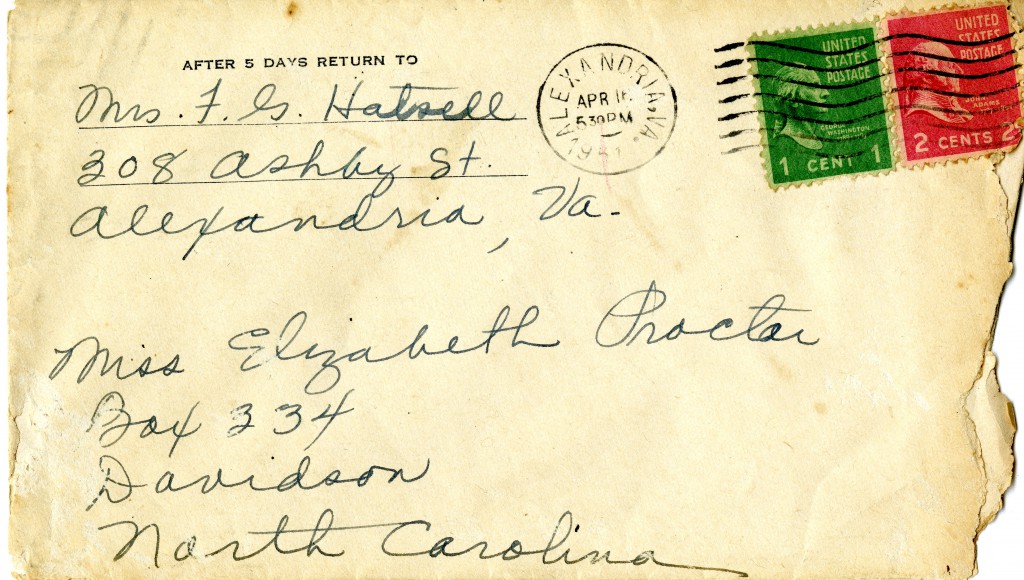 AFTER 5 DAYS RETURN TO
Mrs. F. G. Hatsell
208 Ashby St.
Alexandria, Va.
ALEXANDRIA, VA.
APR 16
530 PM
1941
UNITED
STATES
POSTAGE
GEORGE
WASHINGTON
1 CENT 1
UNITED
STATES
POSTAGE
JOHN
ADAMS
2 CENTS 2
Miss Elizabeth Proctor
Box 334
Davidson
North Carolina